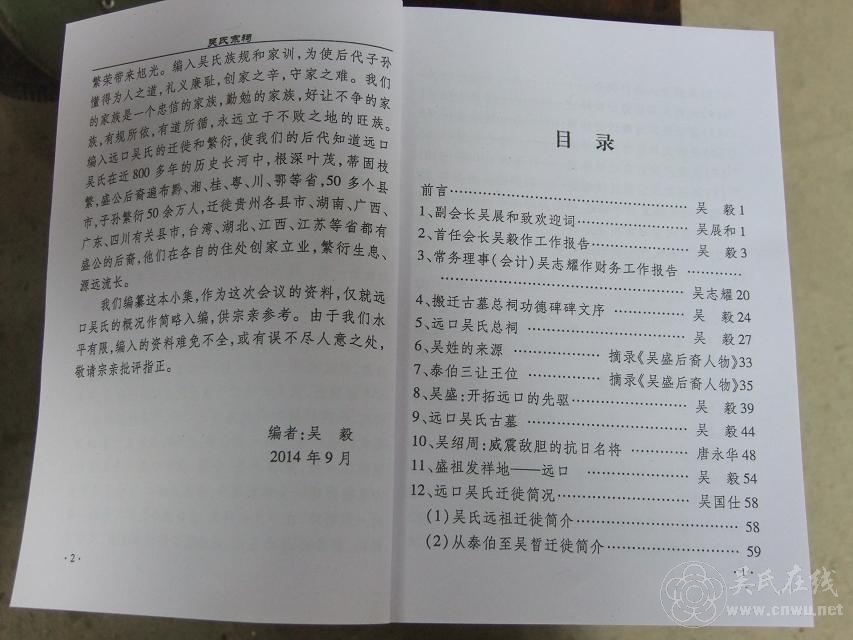 吴氏宗祠
繁荣带来旭光。编入吴氏族规和家训,为使后代子孙
懂得为人之道,礼义廉耻,创家之辛,守家之难。我们
的家族是一个忠信的家族,勤勉的家族,好让不争的家
族,有规所依,有道所循,永远立于不败之地的旺族。
编入远口吴氏的迁徙和繁衍,使我们的后代知道远口
吴氏在近800多年的历史长河中,根深叶茂,蒂固枝
繁,盛公后裔遍布黔、湘、桂、粤、川、鄂等省,50多个县
市,子孙繁衍50余万人,迁徙贵州各县市、湖南、广西、
广东、四川有关县市,台湾、湖北、江西、江苏等省都有
盛公的后裔,他们在各自的住处创家立业,繁衍生息、
源远流长。
我们编纂这本小集,作为这次会议的资料,仅就远
口吴氏的概况作简略入编,供宗亲参考。由于我们水
平有限,编入的资料难免不全,或有误不尽人意之处,
敬请宗亲批评指正。
编者:吴 毅
2014年9月
·2·
目 录
前言……………………………………吴 毅1
1、副会长吴展和致欢迎词……………………吴展和1
2、首任会长吴毅作工作报告…………………吴 毅3
3、常务理事(会计)吴志耀作财务工作报告…………
……………………………………吴志耀20
4、搬迁古墓总祠功德碑碑文序………………吴 毅24
5、远口吴氏总祠……………………………吴 毅27
6、吴姓的来源………………摘录《吴盛后裔人物》33
7、泰伯三让王位……………摘录《吴盛后裔人物》35
8、吴盛:开拓远口的先驱……………………吴 毅39
9、远口吴氏古墓……………………………吴 毅44
10、吴绍周:威震敌胆的抗日名将…………唐永华48
11、盛祖发祥地——远口……………………吴 毅54
12、远口吴氏迁徙简况………………………吴国仕58
(1)吴氏远祖迁徙简介……………………………58
(2)从泰伯至吴晢迁徙简介………………………59
·1·
吴氏在线
www.cnwu.net